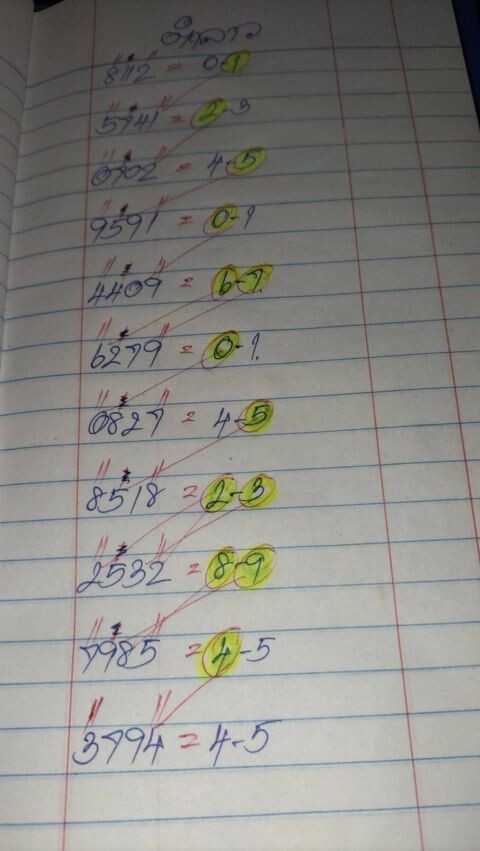 8112 = 0-1
5741 = 2-3
0702 = 4-5
9591 = 0-1
4409 = 6-7
6279 = 0-1
0827 = 4-5
8518 = 2-3
2532 = 8-9
7985 = 4-5
3794 = 4-5